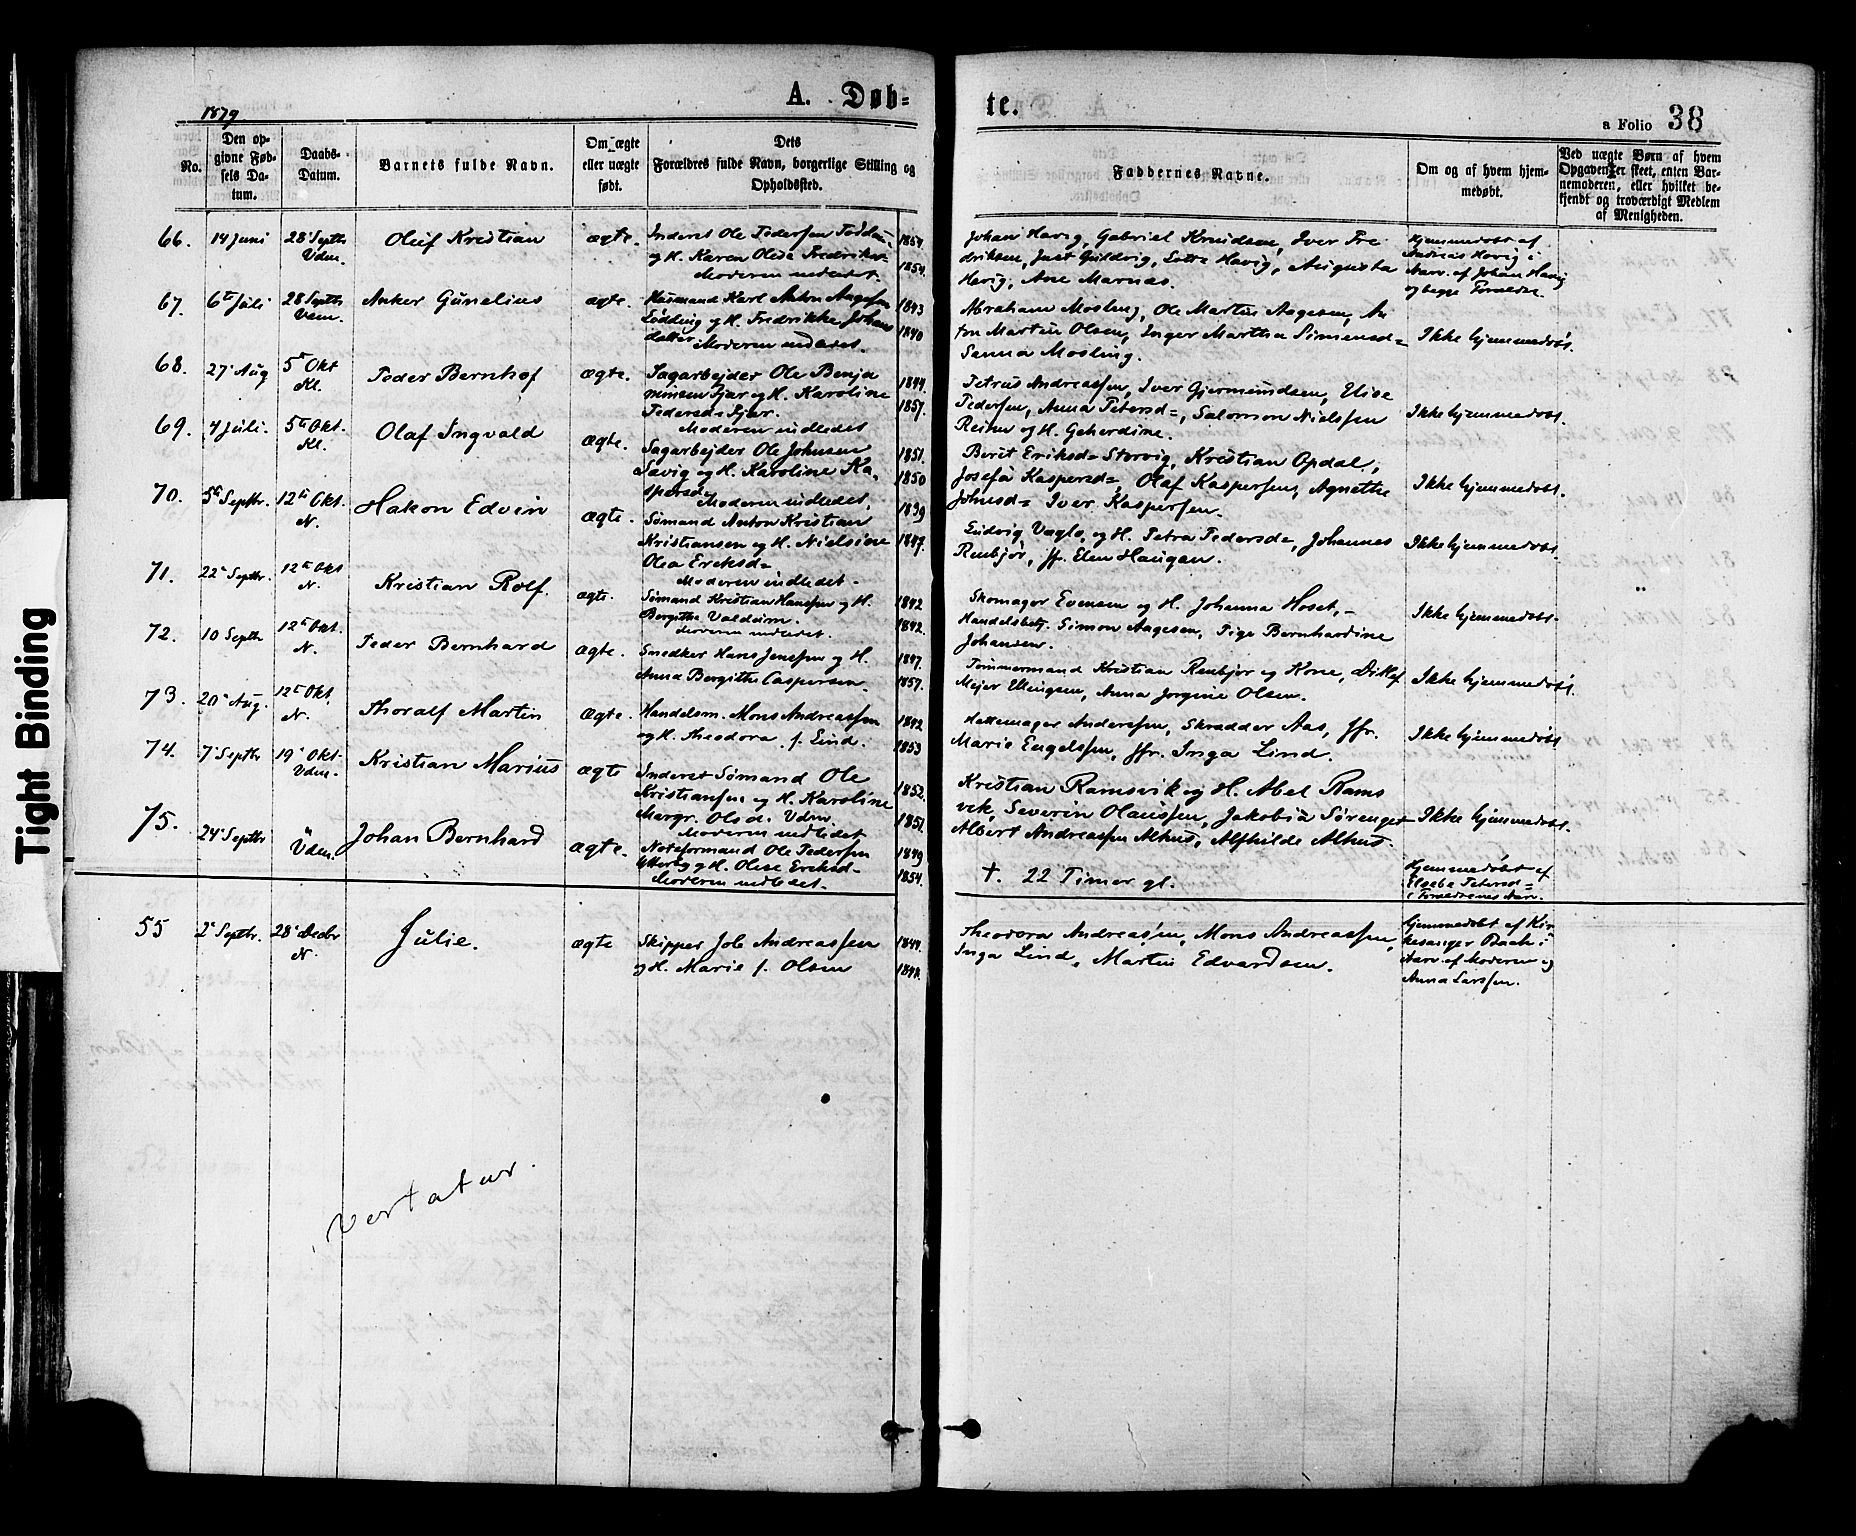 A. Døbte.
1879
a Folio 38
No.
Den opgivne Fødsels Datum.
Daabs-Datum.
Barnets fulde Navn.
Om ægte eller uægte født.
Dets Forældres fulde Navn, borgerlige Stilling og Opholdssted.
Faddernes Navne.
Om og af hvem hjemmedøbt.
Ved uægte Børn af hvem Opgaven er skeet, enten Barnemoderen, eller hvilket bekjendt og troværdigt Medlem af Menigheden.
66. 14 Juni 28 Septbr Udm. Oluf Kristian ægte.
Inderst Ole Pedersen
og H. Karen Olea Fredriks-
Moderen indledet.
1854
Johan Havig, Gabriel Knudsen, Iver Fre
driksen, Just Guldvig, Lotte Havig, Augusta
Havig, Ane Marnæs.
Hjemmedøbt af
Andreas Hovig i
Nærv. af Johan Havig
og begge Forældre.
67. 6te Juli 28 Septbr Udm. Anker Gunelius ægte.
Husmand Karl Anton Aagesen
Lødding og H. Fredrikke Johans
datter Moderen indledet.
1843
1840
Abraham Mosling, Ole Martin Aagesen, An
ton Martin Olsen, Inger Martha Simensd=
Sanna Mosling.
Ikke hjemmedøbt.
68. 27 Aug 5te Okt Kl. Peder Bernhof ægte.
Sagarbejder Ole Benja
minsen Sjar og H. Karoline
Pedersd= Sjar.
Moderen indledet
1844.
1857.
Petrus Andreassen, Iver Gjermundsen, Elise
Pedersen, Anna Petersd=, Salomon Nielssen
Reinu og H. Geherdine.
Ikke hjemmedøbt.
69. 4 Juli. 5te Okt. Kl. Olaf Ingvald ægte.
Sagarbejder Ole Johnsen
Savig og H. Karoline Ka
spersd=
Moderen indledet.
1851.
1850
Berit Eriksd= Storvig, Kristian Opdal,
Josefa Kaspersd=, Olaf Kaspersen, Agnethe
Johnsd= Iver Kaspersen.
Ikke hjemmedøbt.
70. 5te Septbr. 12te Okt. N. Hakon Edvin ægte.
Sømand Anton Kristian
Kristiansen og H. Nielsine
Olea Eriksd=
Moderen indledet-
1839
1847.
Ludvig Vaglo, og H. Petra Pedersd=, Johannes
Renbjør, jfr. Elen Haugan.
Ikke hjemmedøbt.
71. 22 Septbr. 12te Okt N. Kristian Rolf. ægte.
Sømand Kristian Hanssen og H.
Bergithe Valdeim.
Moderen indledet.
1842
1842.
Skomager Evensen og H. Johanna Hoset,
Handelsbetj. Simon Aagesen, Pige Bernhardine
Johansen.
Ikke hjemmedøbt.
72. 10 Septbr 12te Okt. N. Peder Bernhard ægte.
Snedker Hans Jenssen og H.
Anna Bergithe Caspersen.
1847.
1857.
Tømmermand Kristian Renbjør og Kone, Ditlef
Mejer Ellingsen, Anna Jørgine Olsen.
Ikke hjemmedøbt.
73. 20 Aug. 12te Okt. N. Thoralf Martin ægte.
Handelsm. Mons Andreassen
og H. Theodora f. Lind.
1842
1853
Hattemager Anderssen, Skrædder Aas, Jfr.
Marie Engelssen, Jfr. Inga Lind.
Ikke hjemmedøbt
74. 7 Septbr 19 Okt. Udm. Kristian Marius ægte
Inderst Sømand Ole
Kristianssen og H. Karoline
Margr. Ols d. Udm.
Moderen indledet
1852.
1851.
Kristian Ramsvik og H. Abel Rams
vik, Severin Olaussen, Jakobia Sørensd=
Albert Andreassen Alhus, Alfhilde Alhus.
Ikke hjemmedøbt.
75. 24 Septbr Udm. Johan Bernhard ægte.
Noteformand Ole Pedersen
og H. Olise Eriksd=
Moderen indledet.
1849
1854.
†. 22 Timer gl.
Hjemmedøbt af
Petersd=
i Forældrenes Nærv.
55 2 Septbr. 28 Decbr N. Julie. ægte
Skipper Job Andreassen
og H. Marie f. Olsen
1844.
1848.
Theodora Andreassen, Mons Andreassen,
Inga Lind, Martin Edvardsen.
hjemmedøbt af Kir
kesanger Bach i
Nærv. af Moderen og
Anna Larssen.
Vertatur.
Tight Binding